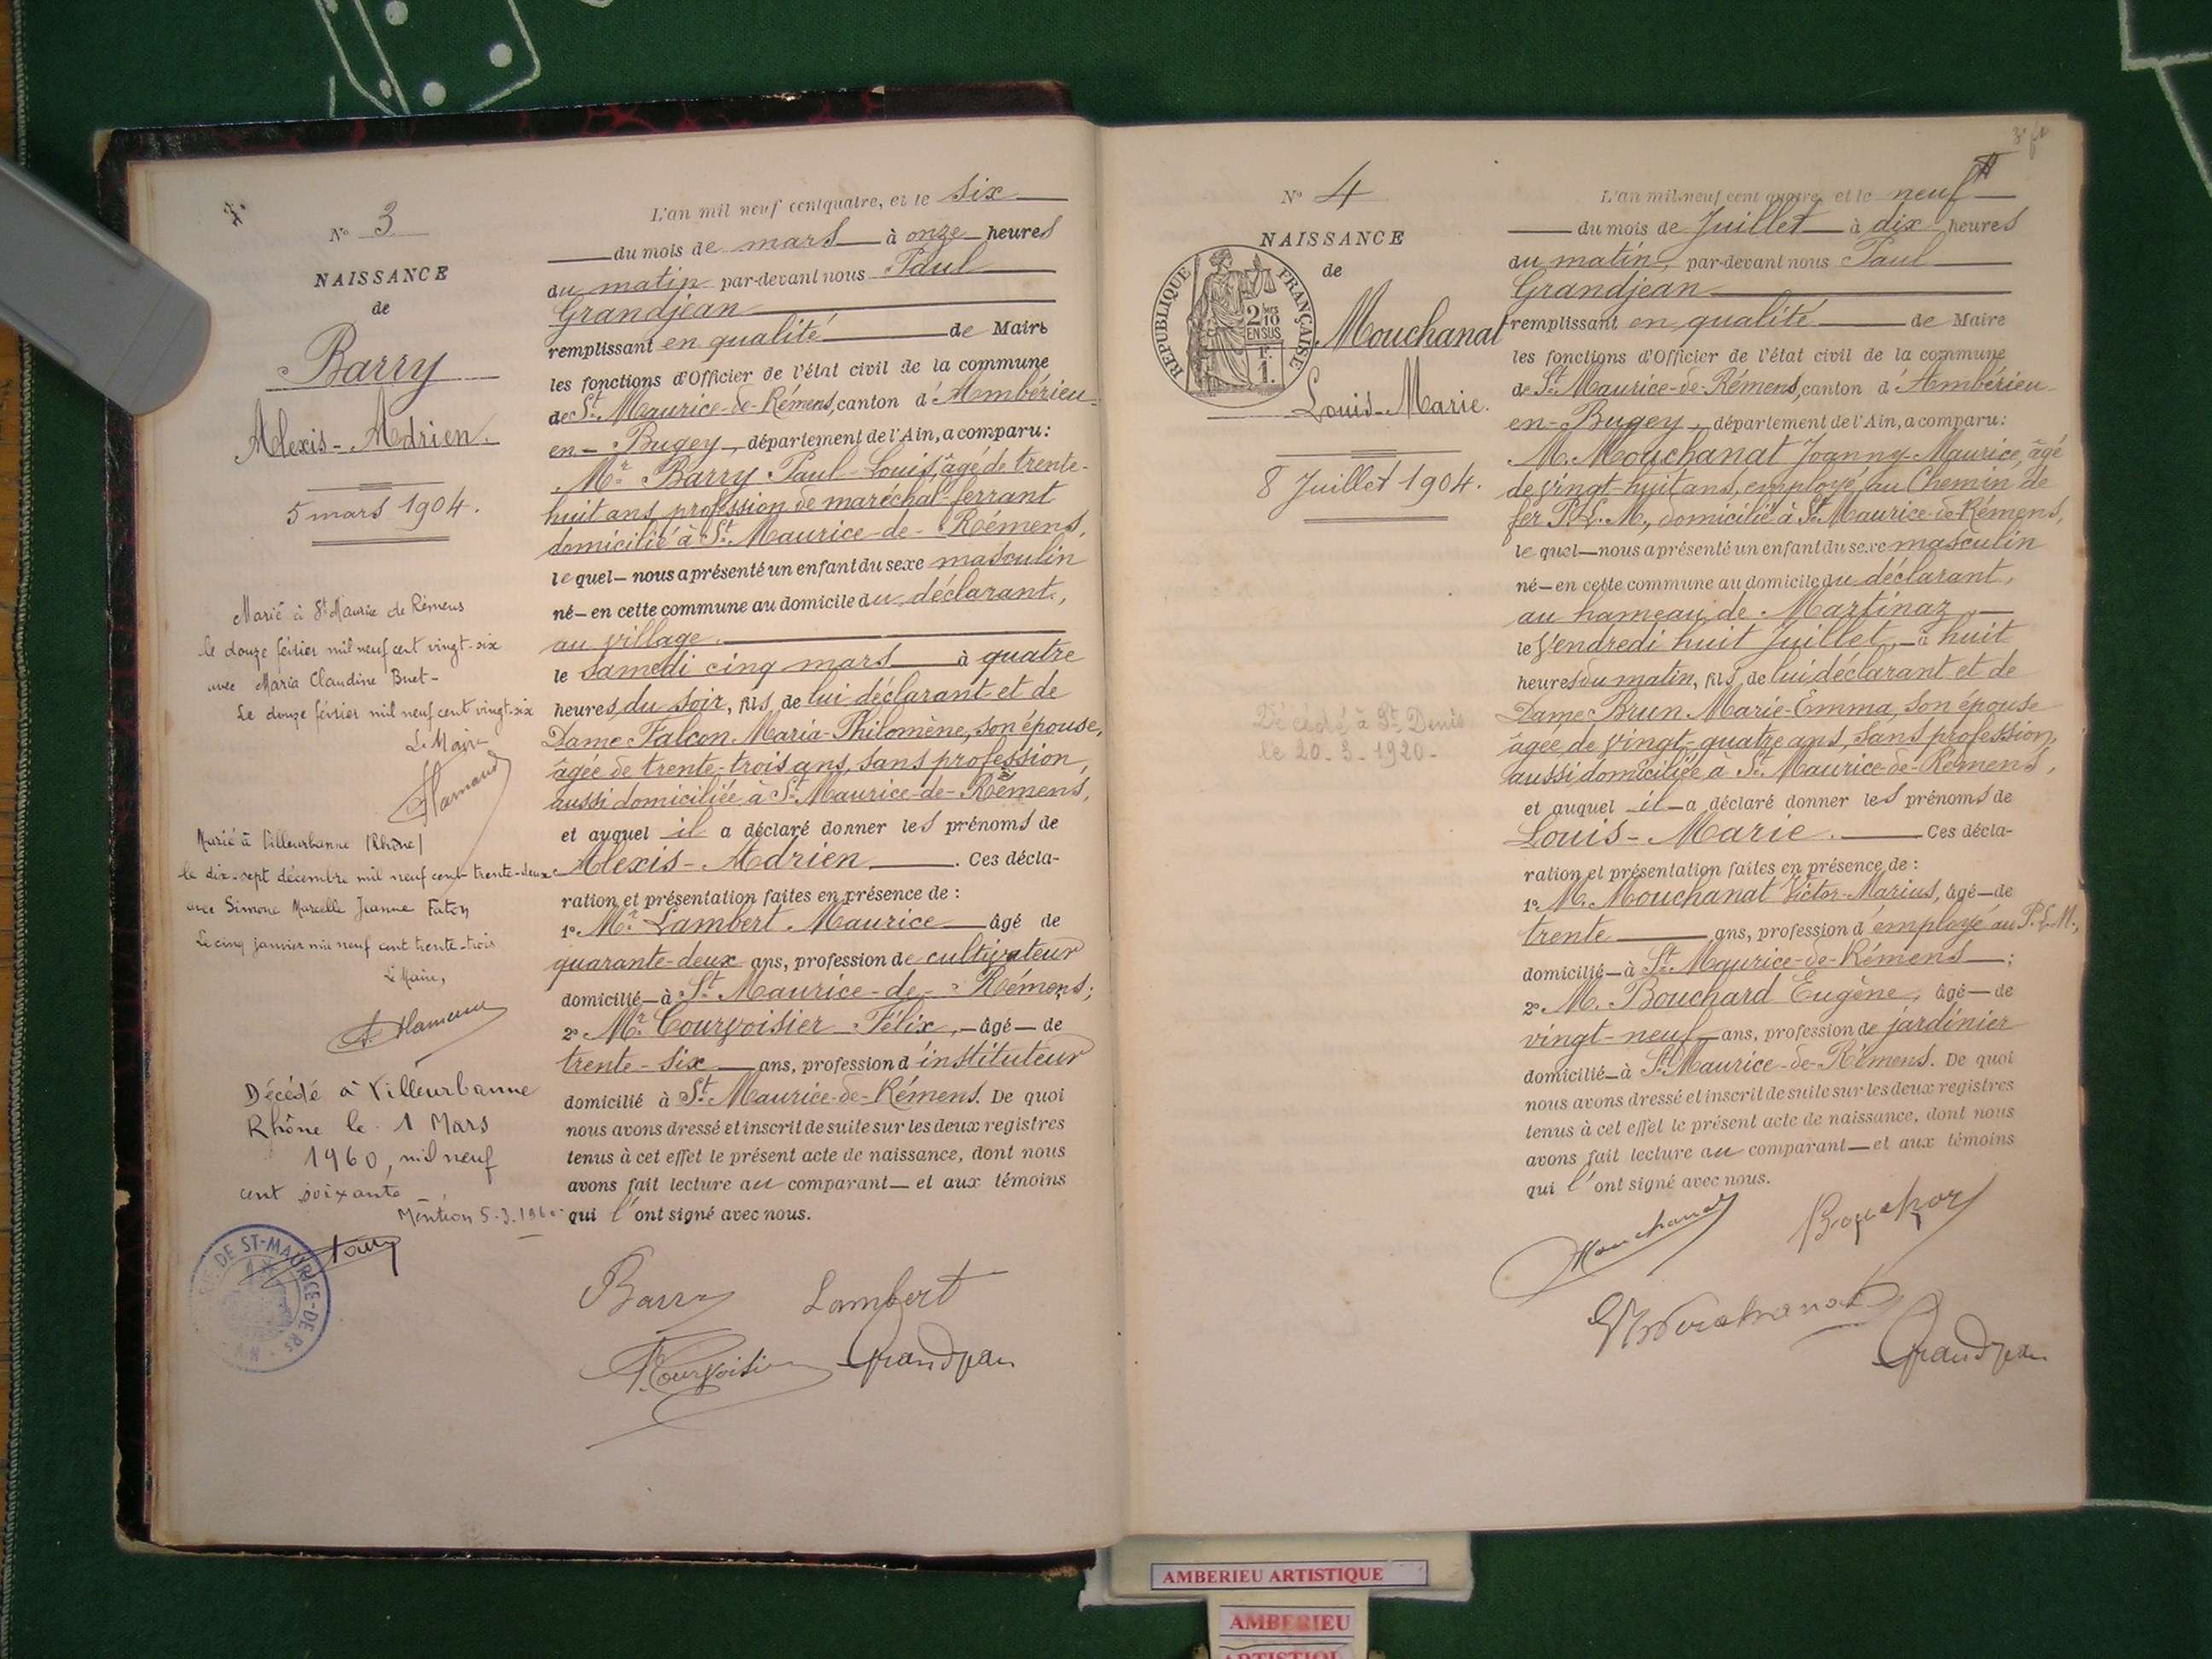 N° 3
NAISSANCE
de
Barry
Alexis-Adrien.
5 mars 1904.
Marié à St Maurice de Rémens
le douze février mil neuf cent vingt-six
avec Maria Claudine Buet-
Le douze février mil neuf cent vingt-six
Le Maire
Marié à Villeurbanne (Rhône)
le dix-sept décembre mil neuf cent trente-deux
avec Simone Marcelle Jeanne Faton
Le cinq janvier mil neuf cent trente-trois
Le Maire,
Décédé à Villeurbanne
Rhône le 1 Mars
1960, mil neuf
cent soixante
Mention 5.3.1960
DE ST-MAURICE-DE-RS
L'an mil neuf cent quatre, et le six
du mois de mars à onze heures
du matin par-devant nous Paul
Grandjean
remplissant en qualité de Maire
les fonctions d'Officier de l'état civil de la commune
de St Maurice-de-Rémens, canton d'Ambérieu-
en-Bugey, département de l'Ain, a comparu:
Mr Barry Paul-Louis, âgé de trente-
huit ans, profession de maréchal-ferrant
domicilié à St Maurice-de-Rémens,
lequel nous a présenté un enfant du sexe masculin
né en cette commune au domicile du déclarant,
au village.
le samedi cinq mars à quatre
heures du soir, fils de lui déclarant et de
Dame Falcon Maria-Philomène, son épouse,
âgée de trente-trois ans, sans profession,
aussi domiciliée à St Maurice-de-Rémens,
et auquel il a déclaré donner les prénoms de
Alexis-Adrien. Ces décla-
ration et présentation faites en présence de :
1° Mr Lambert Maurice âgé de
quarante-deux ans, profession de cultivateur
domicilié à St Maurice-de-Rémens;
2° Mr Courvoisier Félix, âgé de
trente-six ans, profession d'instituteur
domicilié à St Maurice-de-Rémens. De quoi
nous avons dressé et inscrit de suite sur les deux registres
tenus à cet effet le présent acte de naissance, dont nous
avons fait lecture au comparant et aux témoins
qui l'ont signé avec nous.
Barry Lambert
Courvoisier Grandjean
N° 4
NAISSANCE
de
Mouchanat
Louis-Marie.
REPUBLIQUE FRANÇAISE
2/10
EN SUS
1 F.
8 Juillet 1904.
Décédé à St Denis
le 20-3-1920-
L'an mil neuf cent quatre, et le neuf
du mois de Juillet à dix heures
du matin, par-devant nous Paul
Grandjean
remplissant en qualité de Maire
les fonctions d'Officier de l'état civil de la commune
de St Maurice-de-Rémens, canton d'Ambérieu-
en-Bugey, département de l'Ain, a comparu:
M. Mouchanat Joanny-Maurice, âgé
de vingt-huit ans, employé au Chemin de
fer P.L.M., domicilié à St Maurice-de-Rémens,
lequel nous a présenté un enfant du sexe masculin
né en cette commune au domicile du déclarant,
au hameau de Martinaz,
le Vendredi huit Juillet, à huit
heures du matin, fils de lui déclarant et de
Dame Brun Marie-Emma, son épouse
âgée de vingt-quatre ans, sans profession,
aussi domiciliée à St Maurice-de-Rémens,
et auquel il a déclaré donner les prénoms de
Louis-Marie. Ces décla-
ration et présentation faites en présence de :
1° M. Mouchanat Victor-Marius, âgé de
trente ans, profession d'employé au P.L.M.,
domicilié à St Maurice-de-Rémens;
2° M. Bouchard Eugène, âgé de
vingt-neuf ans, profession de jardinier
domicilié à St Maurice-de-Rémens. De quoi
nous avons dressé et inscrit de suite sur les deux registres
tenus à cet effet le présent acte de naissance, dont nous
avons fait lecture au comparant et aux témoins
qui l'ont signé avec nous.
Mouchanat
Mouchanat
Grandjean
AMBERIEU ARTISTIQUE
AMBERIEU